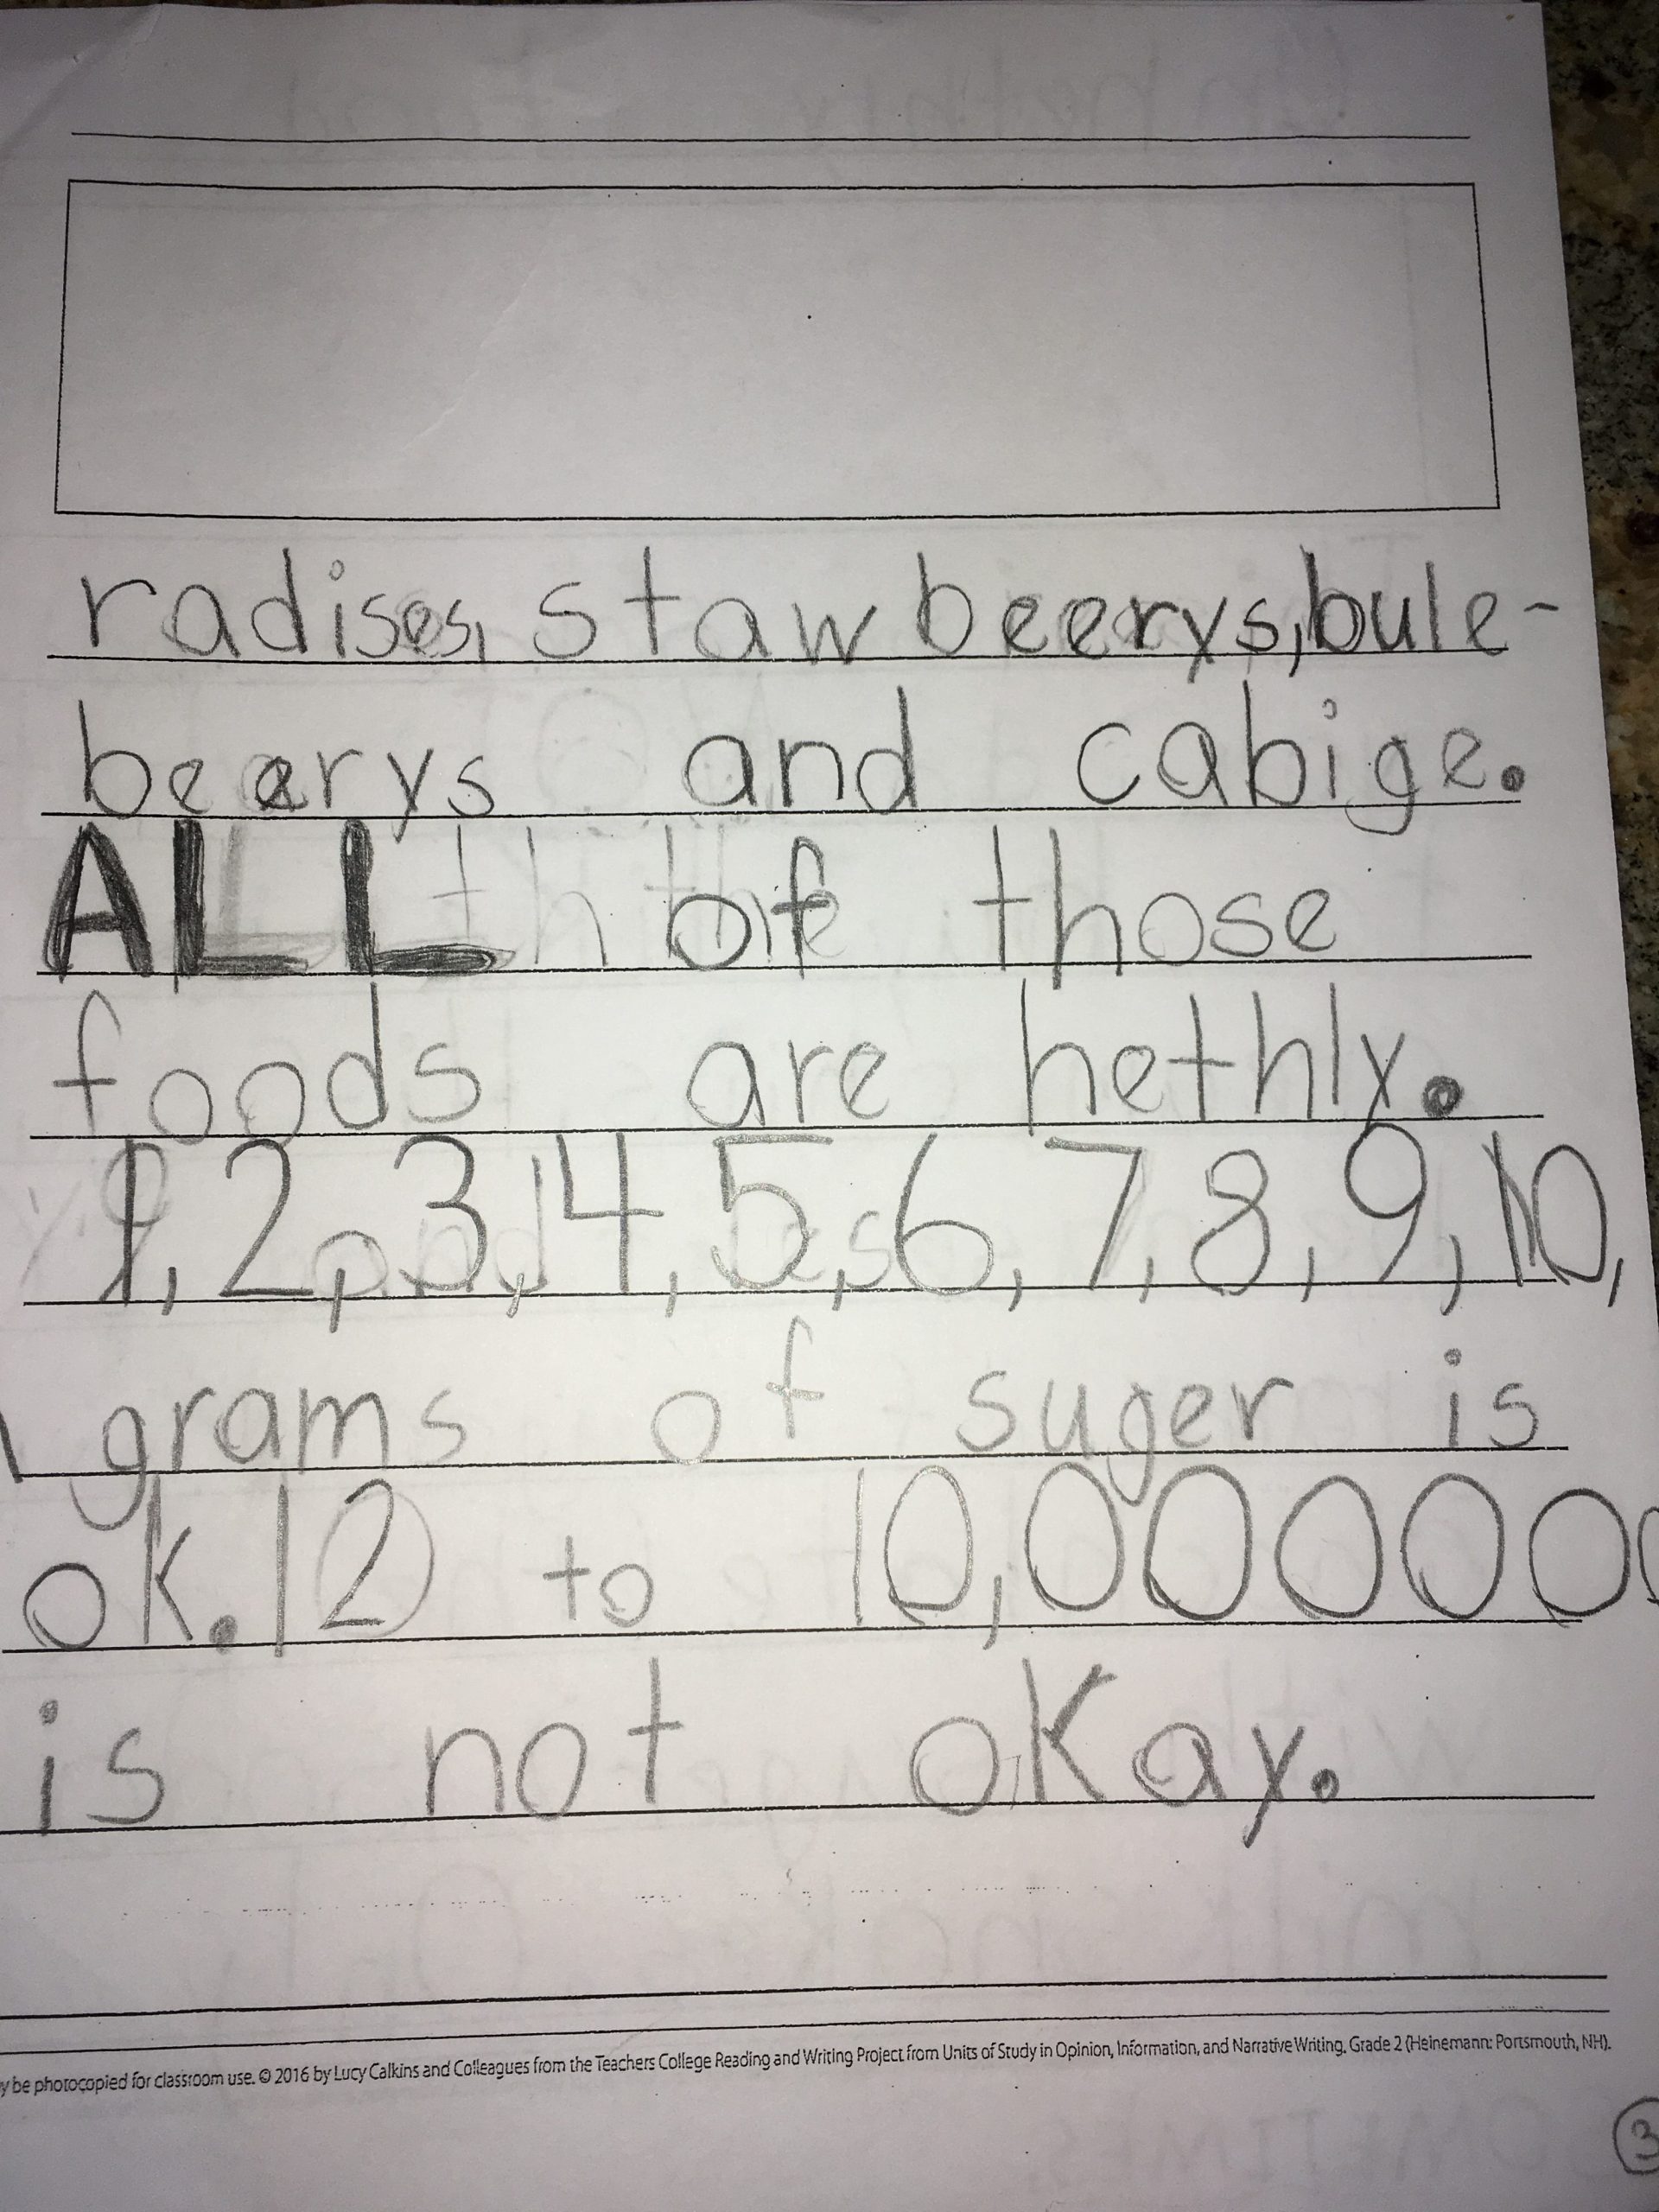 radises, stawbeerys, bule-
beerys and cabige.
ALL of those
foods are hethly.
1, 2, 3, 4, 5, 6, 7, 8, 9, 10,
grams of suger is
ok. 12 to 10,000000
is not okay.
y be photocopied for classroom use. © 2016 by Lucy Calkins and Colleagues from the Teachers College Reading and Writing Project from Units of Study in Opinion, Information, and Narrative Writing, Grade 2 (Heinemann: Portsmouth, NH).
3